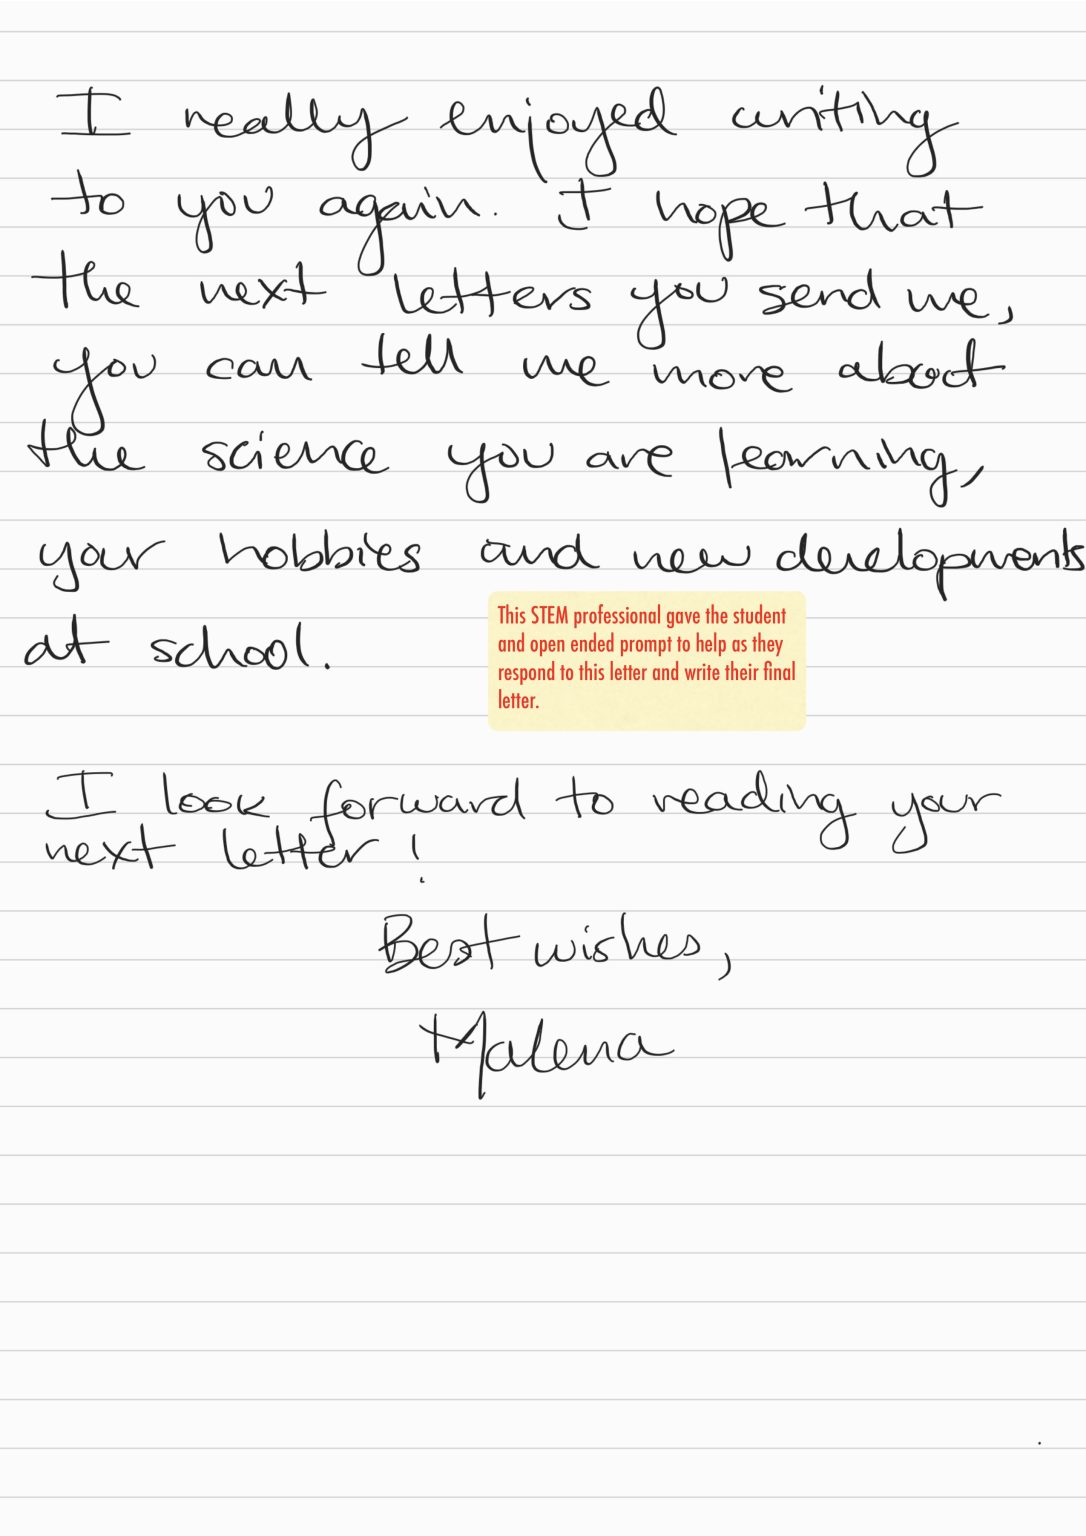 I really enjoyed writing
to you again. I hope that
the next letters you send me,
you can tell me more about
the science you are learning,
your hobbies and new developments
at school.
This STEM professional gave the student
and open ended prompt to help as they
respond to this letter and write their final
letter.
I look forward to reading your
next letter!
Best wishes,
Malena